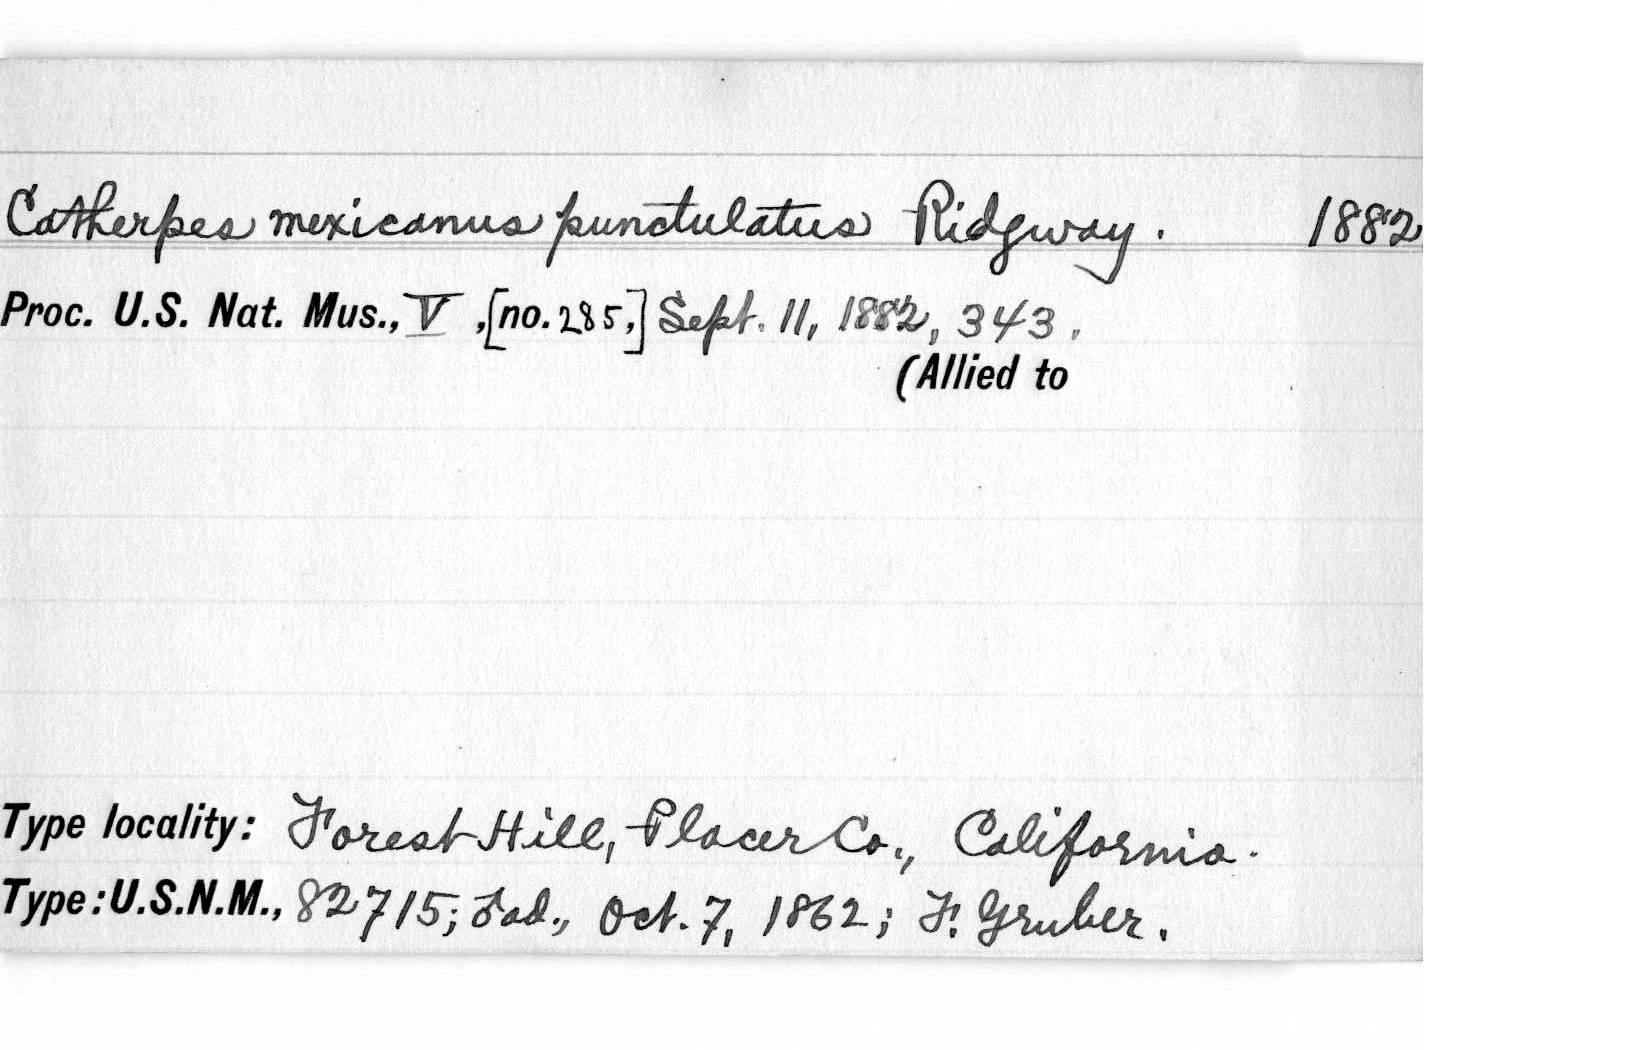 Catherpes mexicanus punctulatus Ridgway. 1882
Proc. U.S. Nat. Mus., V, [no. 285,] Sept. 11, 1882, 343.
(Allied to
Type locality: Forest Hill, Placer Co., California.
Type: U.S.N.M., 82715; ad., Oct. 7, 1862; F. Gruber.